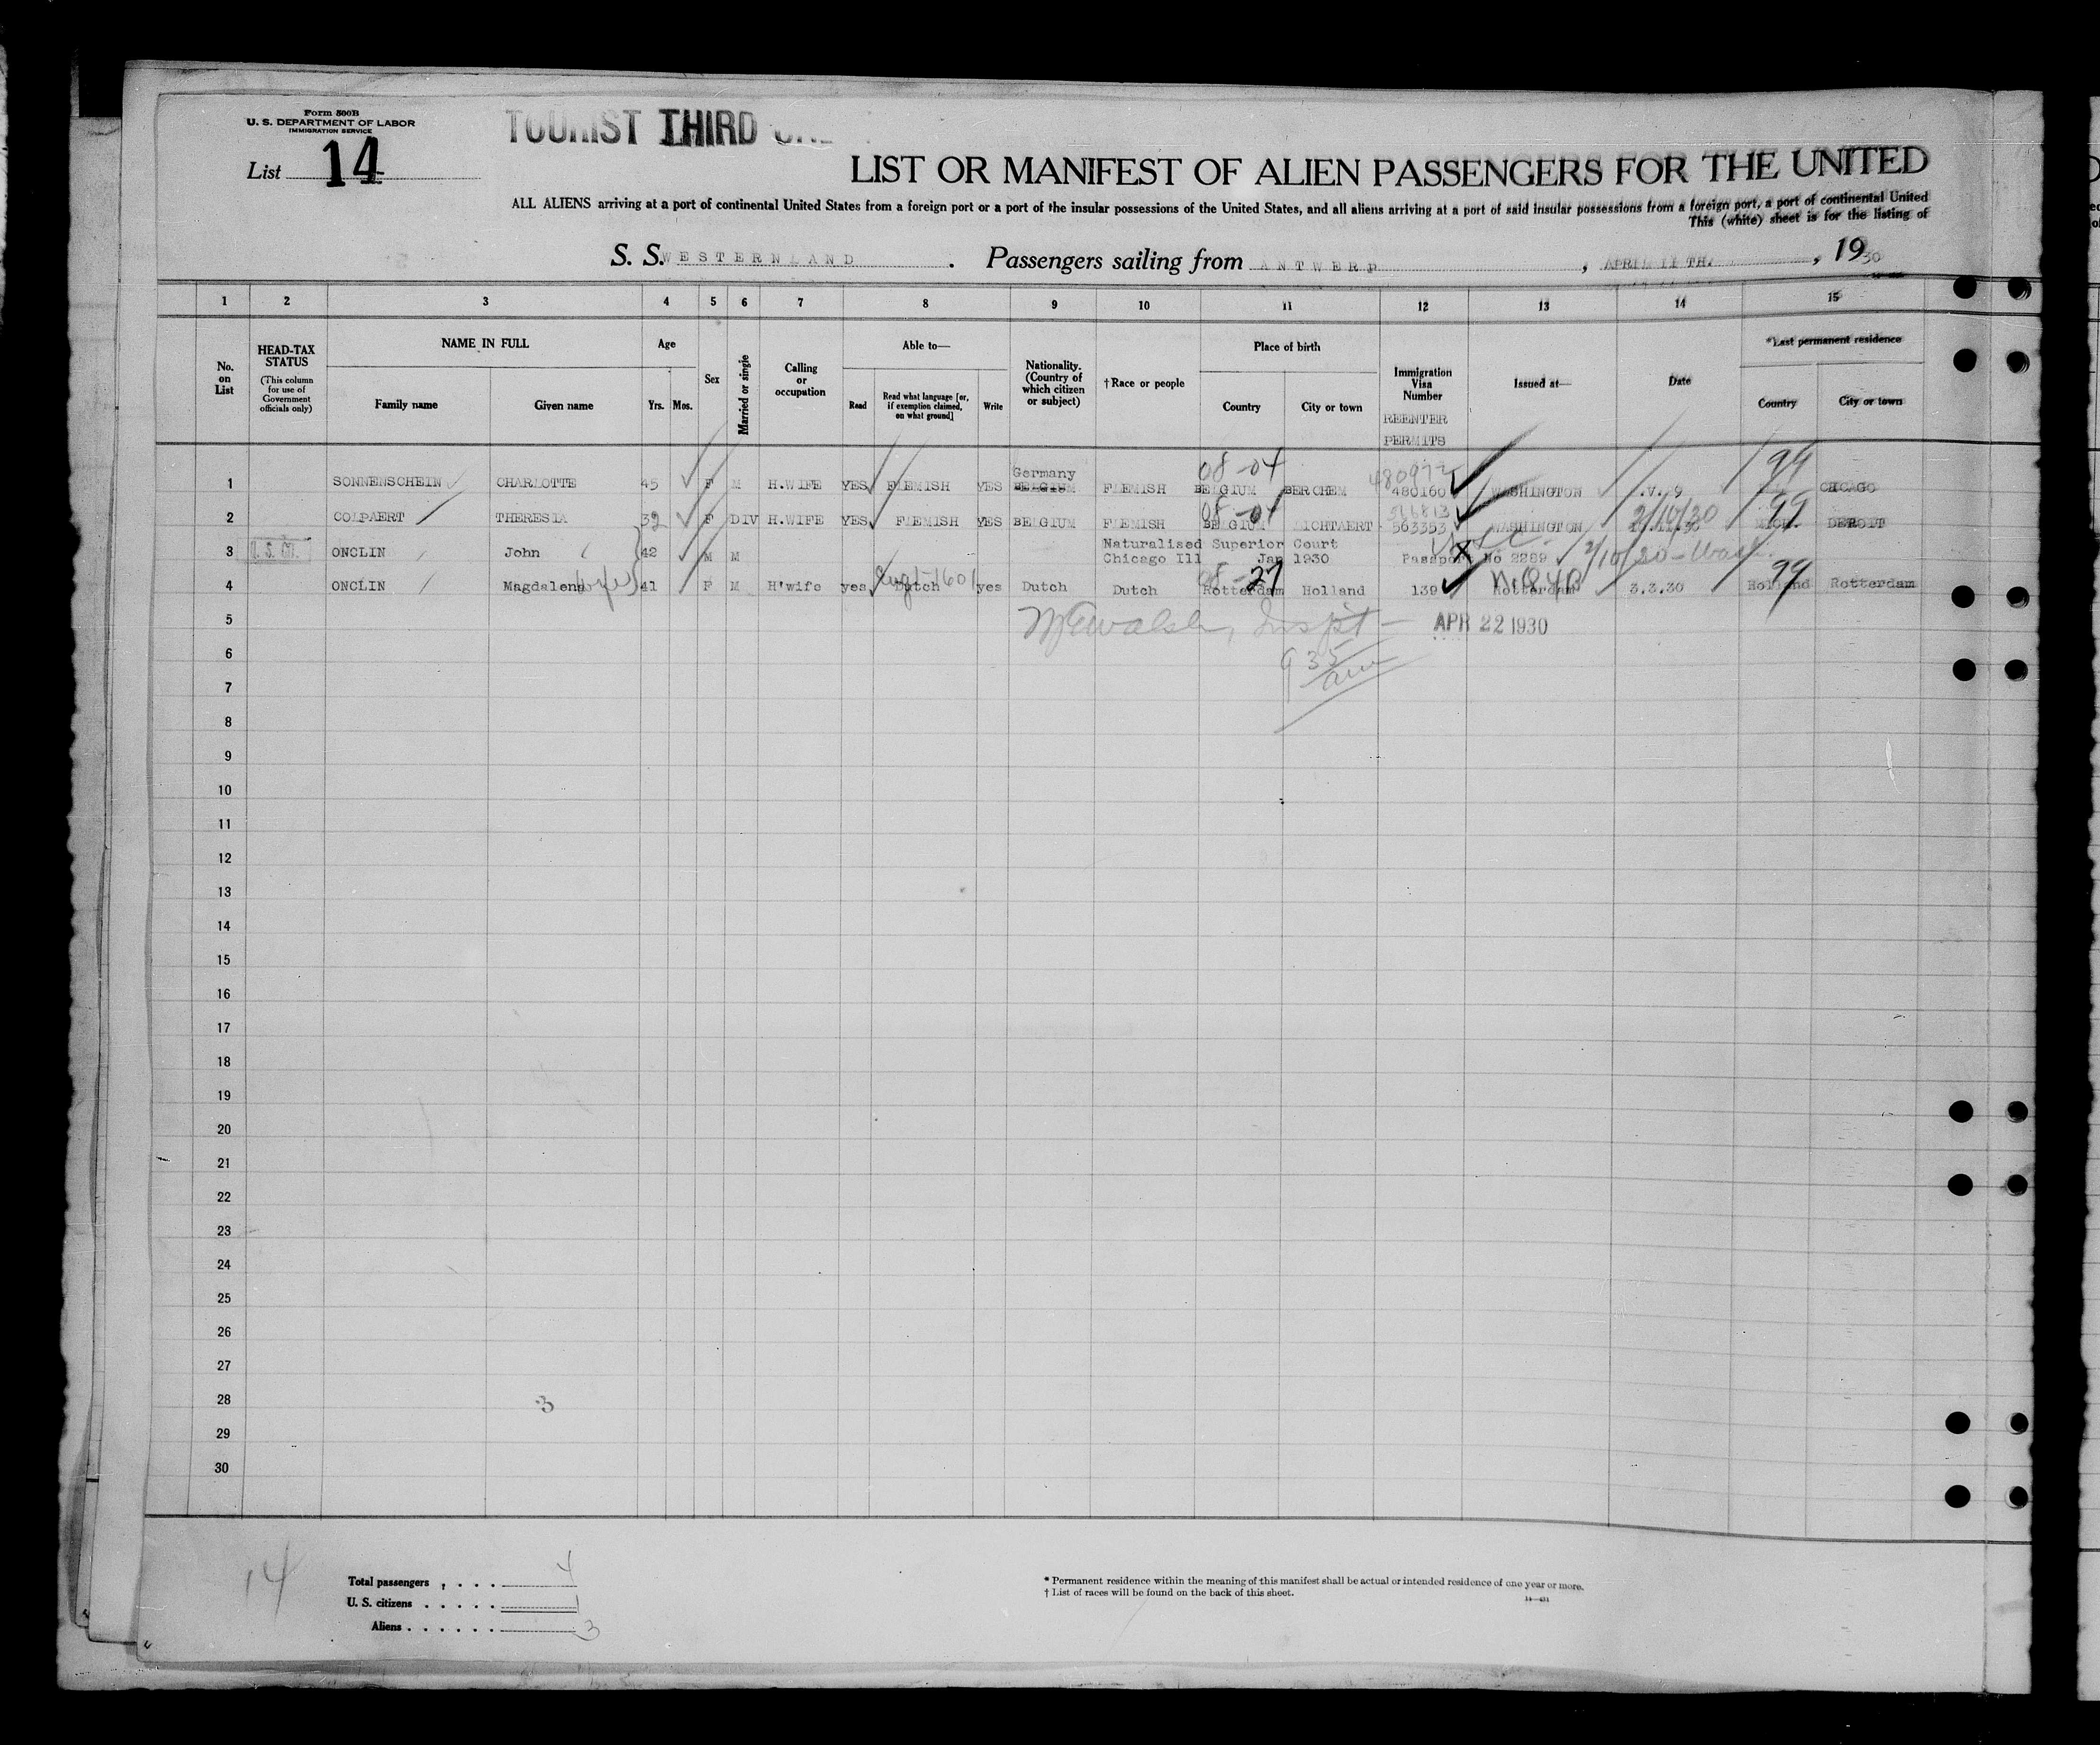 Form 500B
U. S. DEPARTMENT OF LABOR
IMMIGRATION SERVICE
TOURIST THIRD
List 14
LIST OR MANIFEST OF ALIEN PASSENGERS FOR THE UNITED
ALL ALIENS arriving at a port of continental United States from a foreign port or a port of the insular possessions of the United States, and all aliens arriving at a port of said insular possessions from a foreign port, a port of continental United
This (white) sheet is for the listing of
S. S. WESTERNLAND . Passengers sailing from ANTWERP , APRIL 11 TH. , 1930
1 2 3 4 5 6 7 8 9 10 11 12 13 14 15
No. on List
HEAD-TAX STATUS (This column for use of Government officials only)
NAME IN FULL
Family name Given name
Age
Yrs. Mos.
Sex
Married or single
Calling or occupation
Able to—
Read
Read what language [or, if exemption claimed, on what ground]
Write
Nationality. (Country of which citizen or subject)
†Race or people
Place of birth
Country City or town
Immigration Visa Number
REENTER PERMITS
Issued at—
Date
*Last permanent residence
Country City or town
08-04 480972 99
1 SONNENSCHEIN CHARLOTTE 45 F M H.WIFE YES FLEMISH YES Germany BELGIUM FLEMISH BELGIUM BERCHEM 480160 WASHINGTON CHICAGO
08-04 2/10/30 99
2 COLPAERT THERESIA 32 F DIV H.WIFE YES FLEMISH YES BELGIUM FLEMISH BELGIUM LICHTAERT 563353 WASHINGTON MICH. DETROIT
3 U. S. ONCLIN John 42 M M Naturalised Superior Court
Chicago Ill Jan 1930 Passport No 2289 2/10/30-Wash.
4 ONCLIN Magdalena (wife) 41 F M H'wife yes Dutch yes Dutch Dutch Rotterdam Holland 139 Rotterdam 3.3.30 Holland Rotterdam
08-27 99
Walsh, Inspt- APR 22 1930
5
6
9 35 am
7
8
9
10
11
12
13
14
15
16
17
18
19
20
21
22
23
24
25
26
27
28 3
29
30
14
Total passengers . . . . 4
U. S. citizens . . . . . 1
Aliens . . . . . . 3
* Permanent residence within the meaning of this manifest shall be actual or intended residence of one year or more.
† List of races will be found on the back of this sheet.